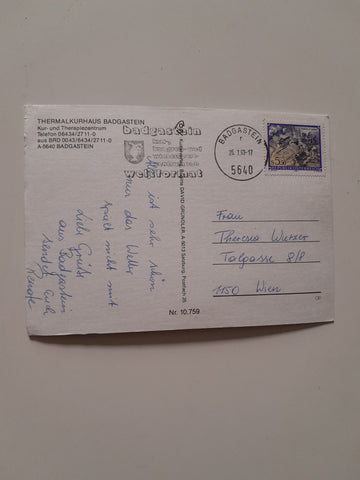 THERMALKURHAUS BADGASTEIN
Kur- und Therapiezentrum
Telefon 06434/2711-0
aus BRD 0043/6434/2711-0
A-5640 BADGASTEIN
badgastein
weltformat
BADGASTEIN
r
5640
ist sehr schön
nur das Wetter
spielt nicht mit
Liebe Grüße
aus Badgastein
sendet Euch
Renate
DAVID GRÜNDLER, A-5013 Salzburg, Postfach 25
Nr. 10.759
Frau
Theresia Wurzer
Talgasse 8/8
1150 Wien